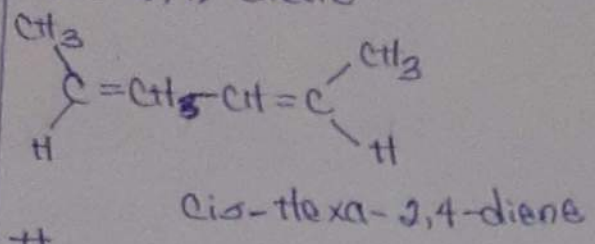 CH3 CH3
C=CH-CH=C
H H
Cis-Hexa-2,4-diene